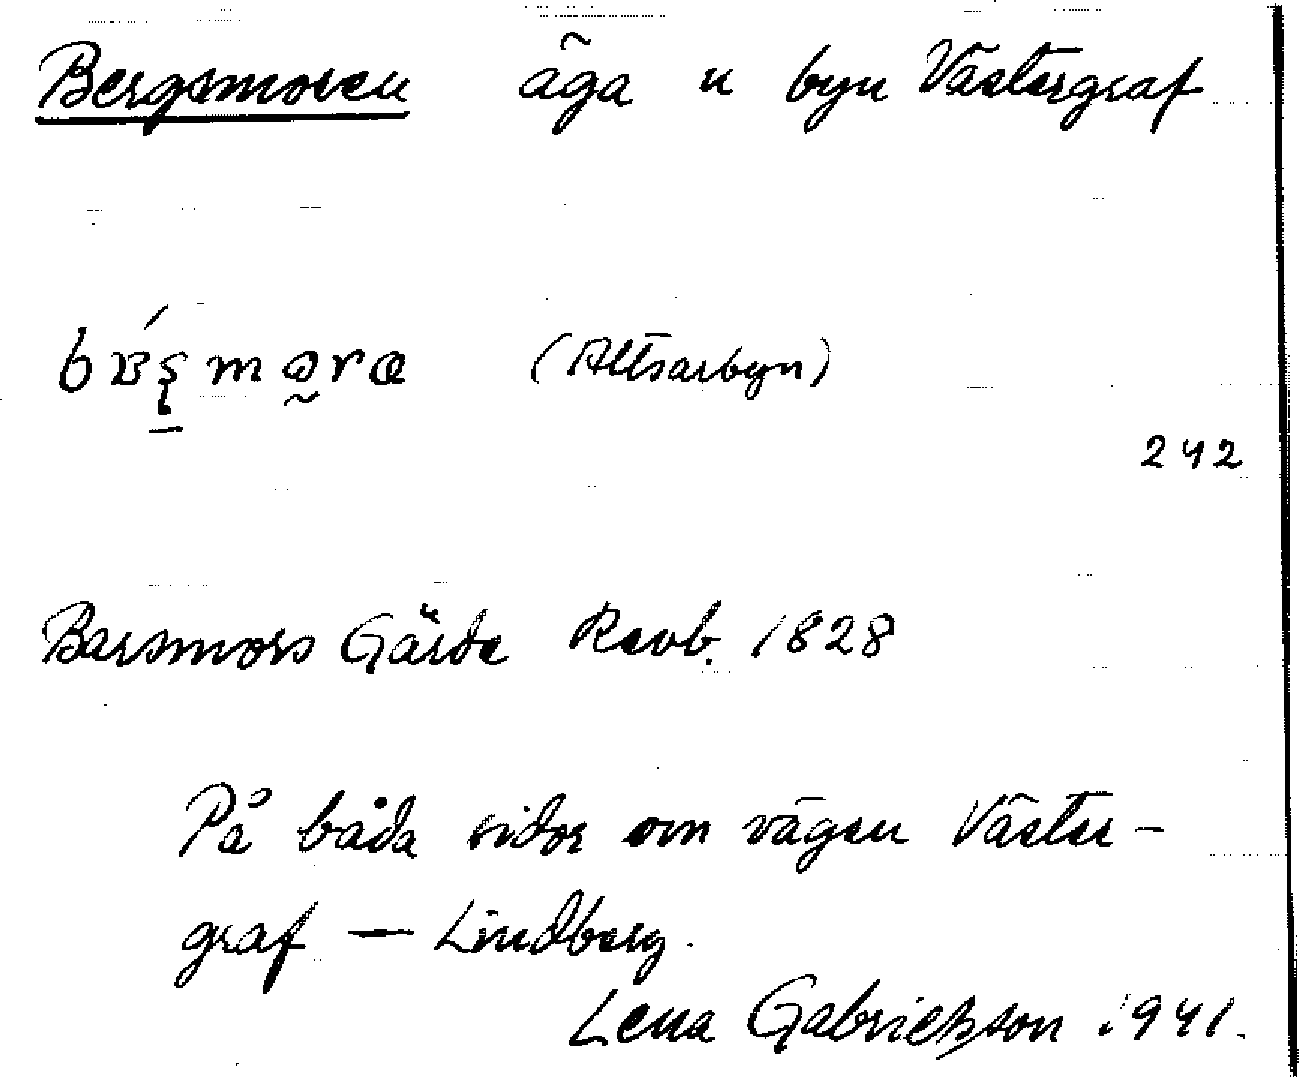 Bergsmoren äga n byn Västergraf
(Altsarbyn)
242
Barsmors Gärde Revb. 1828
På båda sidor om vägen Väster-
graf — Lindberg.
Lena Gabrielsson 1941.